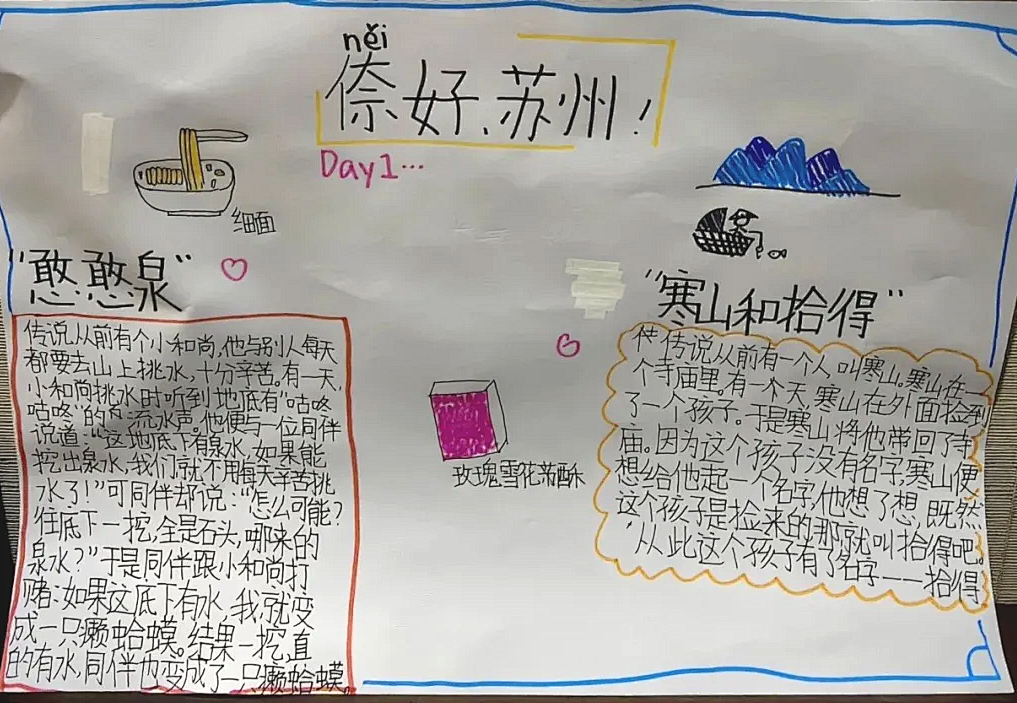 něi
倷好、苏州！
Day1…
细面
"憨憨泉"
传说从前有个小和尚,他与别人每天
都要去山上挑水,十分辛苦。有一天,
小和尚挑水时听到地底有"咕咚
咕咚"的流水声。他便与一位同伴
说道:"这地底下有泉水,如果能
挖出泉水,我们就不用每天辛苦挑
水了!"可同伴却说:"怎么可能?
往底下一挖,全是石头,哪来的
泉水?"于是同伴跟小和尚打
赌:如果这底下有水,我就变
成一只癞蛤蟆。结果一挖,直
的有水,同伴也变成了一只癞蛤蟆。
玫瑰雪花苏酥
"寒山和拾得"
传说从前有一个人叫寒山,寒山在一
个寺庙里。有一个天,寒山在外面捡到
了一个孩子。于是寒山将他带回了寺
庙。因为这个孩子没有名字,寒山便
想给他起一个名字,他想了想,既然
这个孩子是捡来的那就叫拾得吧。
从此这个孩子有了名字——拾得